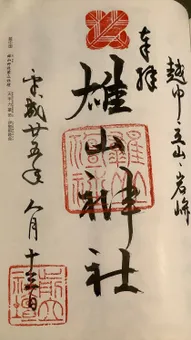 越中立山岩峅
奉拝
雄山神社
平成廿五年八月十三日